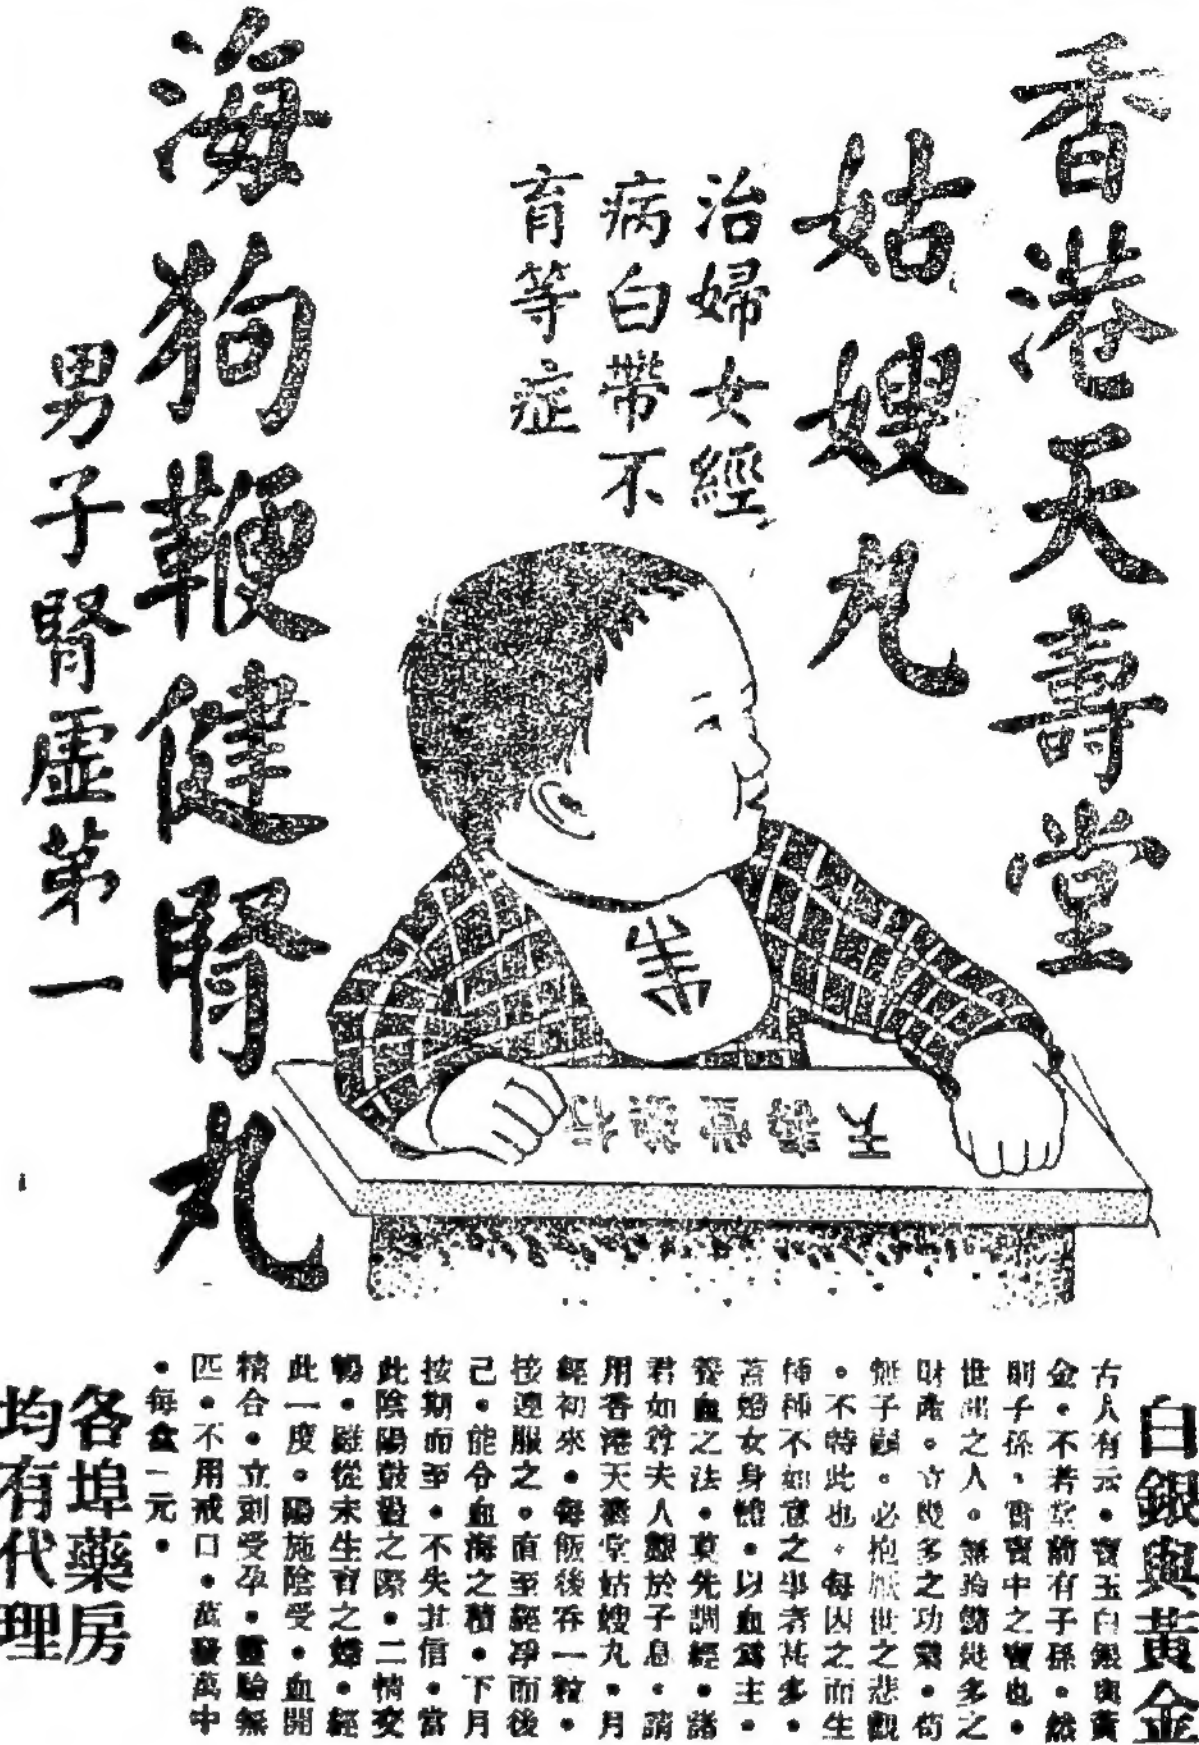 香港天壽堂
姑嫂丸
治婦女經
病白帶不
育等症
海狗鞭健腎丸
男子腎虛第一
天壽堂藥行
白銀與黃金
古人有云。寶玉白銀與黃
金。不若堂前有子孫。然
則子孫。實寶中之寶也。
世間之人。無論幾多之
財產。立幾多之功業。苟
無子嗣。必抱厭世之悲觀
。不特此也。每因之而生
種種不如意之事者甚多。
蓋婦女身體。以血為主。
養血之法。莫先調經。諸
君如尊夫人艱於子息。請
用香港天壽堂姑嫂丸。月
經初來。每飯後吞一粒。
按連服之。直至經凈而後
己。能令血海之積。下月
按期而至。不失其信。當
此陰陽鼓盪之際。二情交
暢。雖從未生育之婦。經
此一度。陽施陰受。血開
精合。立刻受孕。靈驗無
匹。不用戒口。萬發萬中
。每盒二元。
各埠藥房
均有代理